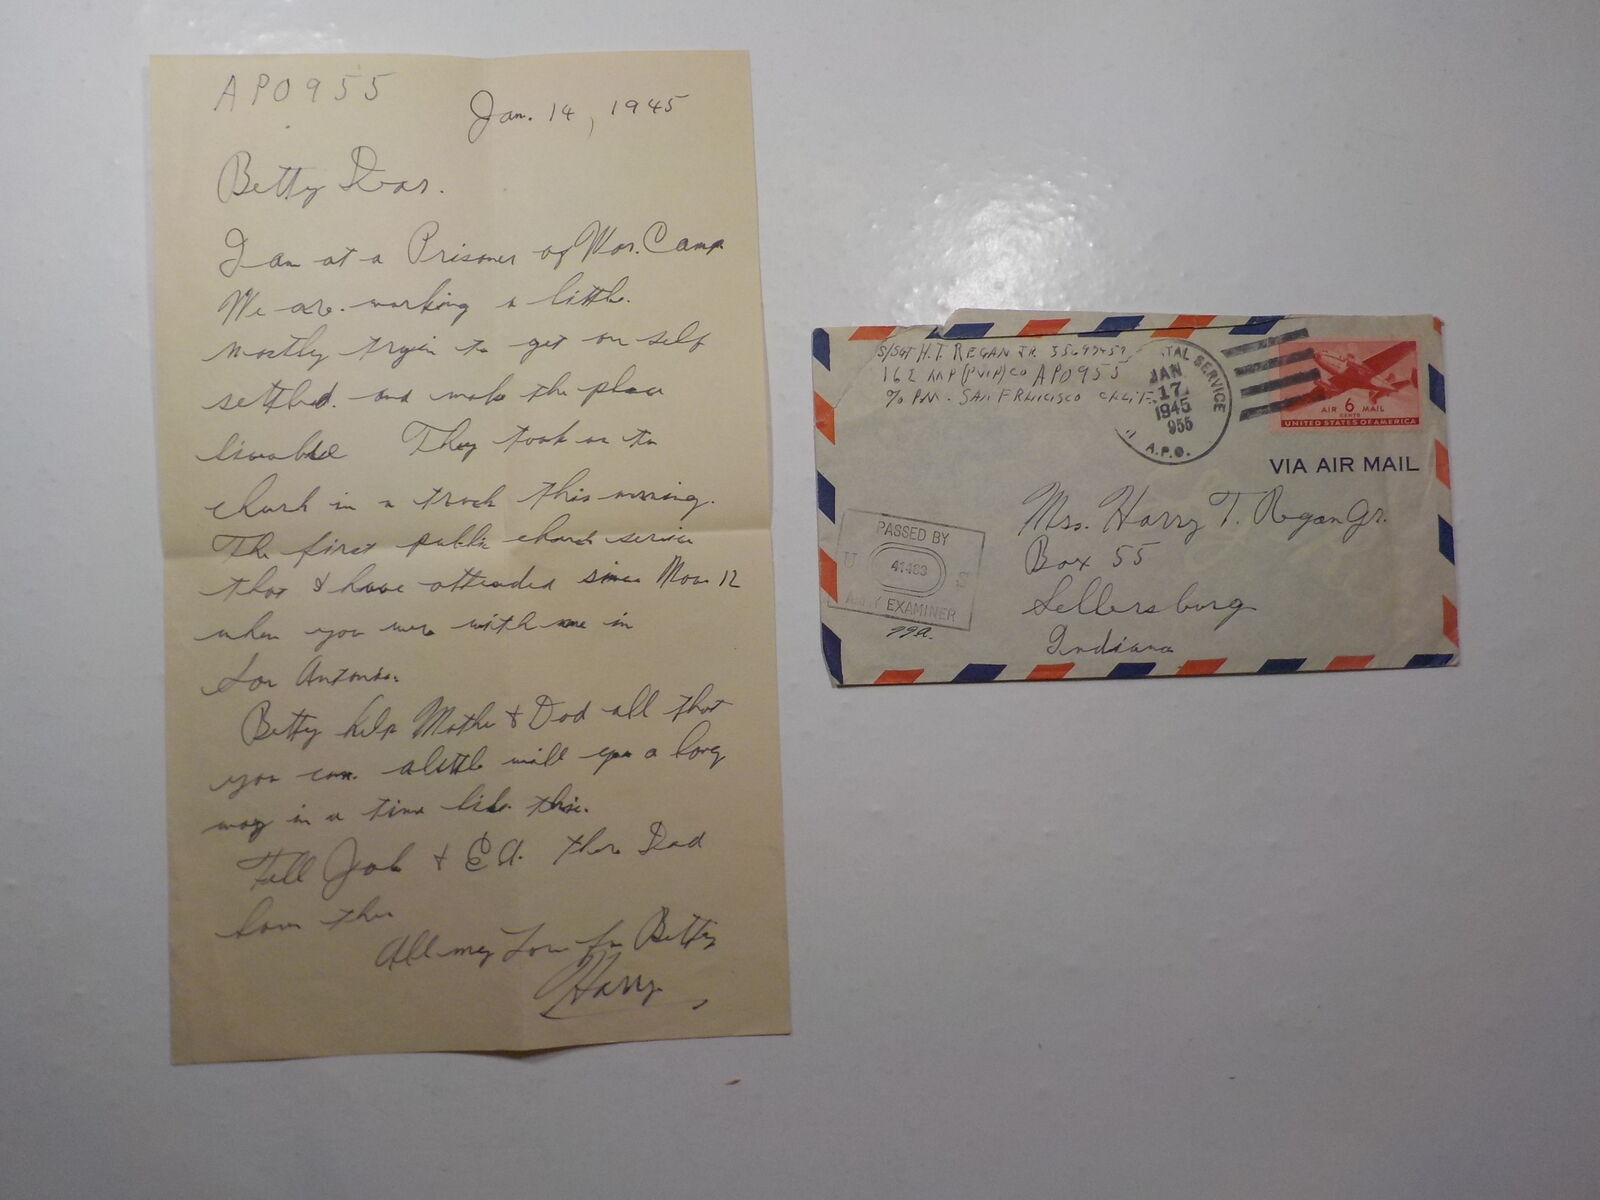 APO 955
Jan. 14, 1945
Betty Dear.
I am at a Prisoner of War. Camp
We are working a little.
mostly tryin to get our self
settled. and make the place
livable They took us to
church in a truck this morning.
The first public church service
that I have attended since Nov 12
when you were with me in
San Antonio.
Betty help Mother & Dad all that
you can. a little will go a long
way in a time like this.
Tell Jack & Ed. there Dad
loves them
All my Love for Betty
Harry
S/Sgt H. T. REGAN JR.
162 MP (PWP) CO APO 955
% PM. SAN FRANCISCO CALIF.
POSTAL SERVICE
JAN
17
1945
955
A.P.O.
AIR 6 MAIL
CENTS
UNITED STATES OF AMERICA
VIA AIR MAIL
Mrs. Harry T. Regan Jr.
Box 55
Sellersburg
Indiana
PASSED BY
U 41483 S
ARMY EXAMINER